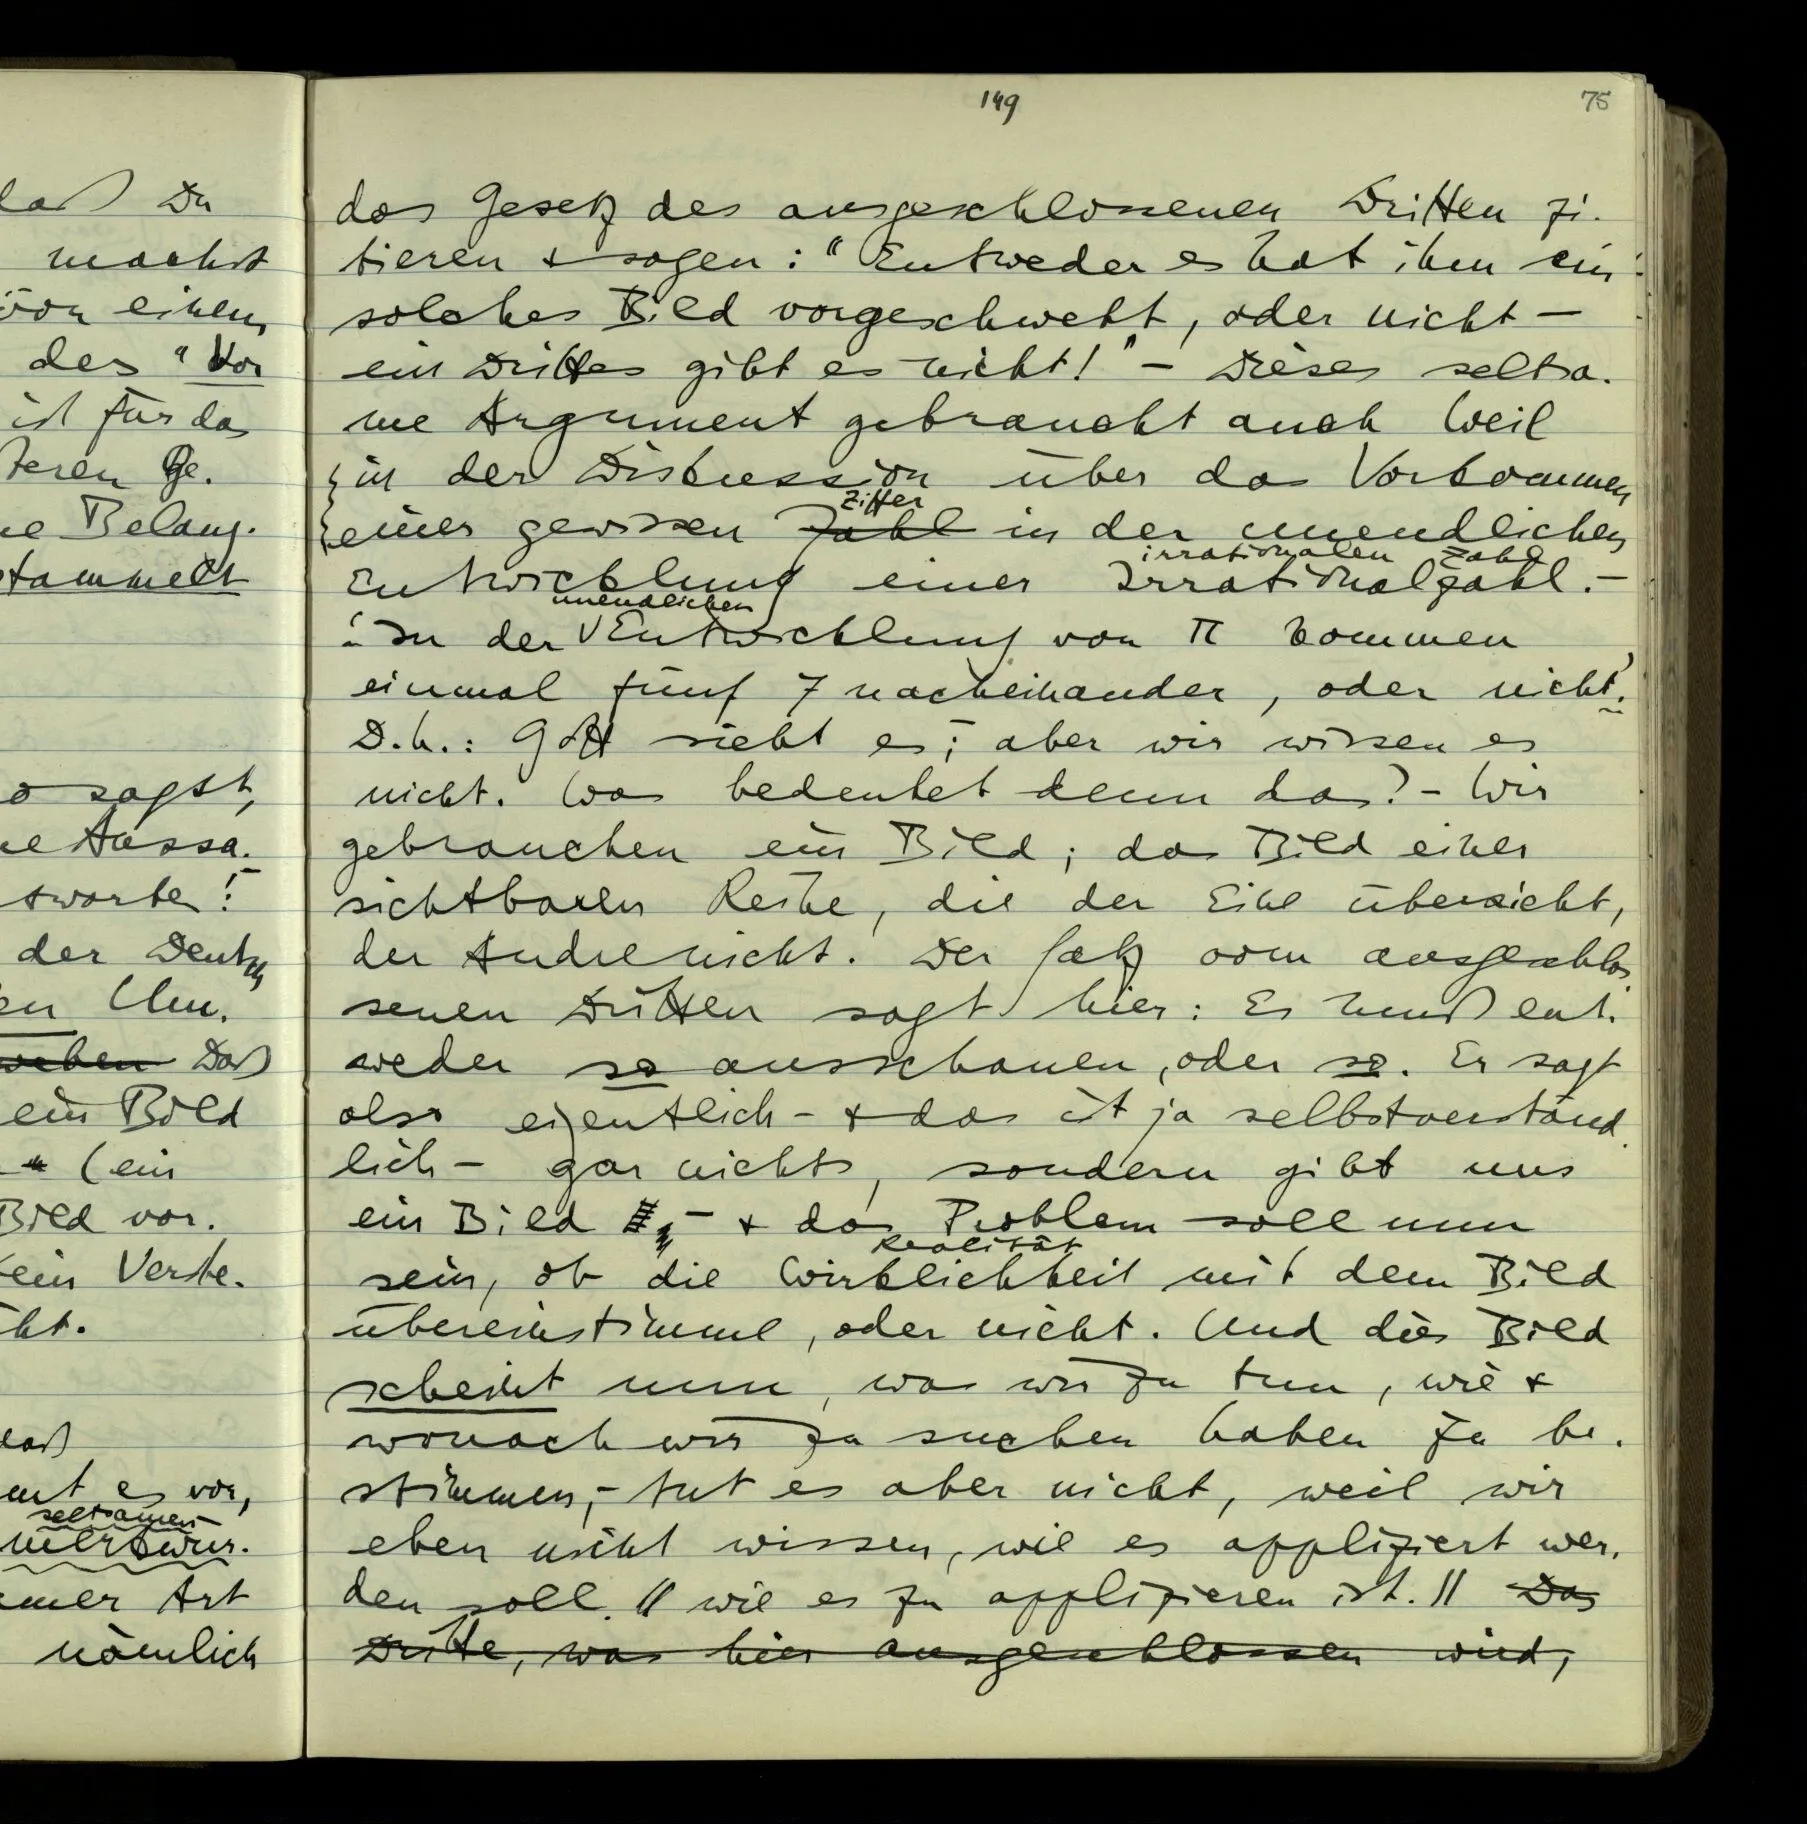 149
75
daß Du
machst
von einem
des "Vor
ist für das
teren Ge-
ne Belang.
stammelt
o sagst,
ne Aussa-
tworte!
der Deutsch
en Um-
weben Daß
ein Bild
(ein
Bild vor.
kein Verste-
ht.
daß
mt es vor,
seltsamer
merkwür-
mer Art
nämlich
das Gesetz des ausgeschlossenen Dritten zi-
tieren & sagen: "Entweder es hat ihm ein
solches Bild vorgeschwebt, oder nicht –
ein Drittes gibt es nicht!" – Dieses seltsa-
me Argument gebraucht auch Weil
in der Diskussion über das Vorkommen
Ziffer
einer gewissen Zahl in der unendlichen
irrationalen Zahl
Entwicklung einer Irrationalzahl. –
unendlichen
: In der Entwicklung von π kommen
einmal fünf 7 nacheinander, oder nicht.
D.h.: Gott sieht es; aber wir wissen es
nicht. Was bedeutet denn das? – Wir
gebrauchen ein Bild; das Bild einer
sichtbaren Reihe, die der Eine übersieht,
der Andre nicht. Der Satz vom ausgeschlos-
senen Dritten sagt hier: Es muß ent-
weder so ausschauen, oder so. Er sagt
also eigentlich – & das ist ja selbstverständ-
lich – gar nichts, sondern gibt uns
ein Bild – & das Problem soll nun
Realität
sein, ob die Wirklichkeit mit dem Bild
übereinstimme, oder nicht. Und dies Bild
scheint nun, was wir zu tun, wie &
wonach wir zu suchen haben zu be-
stimmen, – tut es aber nicht, weil wir
eben nicht wissen, wie es appliziert wer-
den soll. // wie es zu applizieren ist. // Das
Dritte, was hier ausgeschlossen wird,